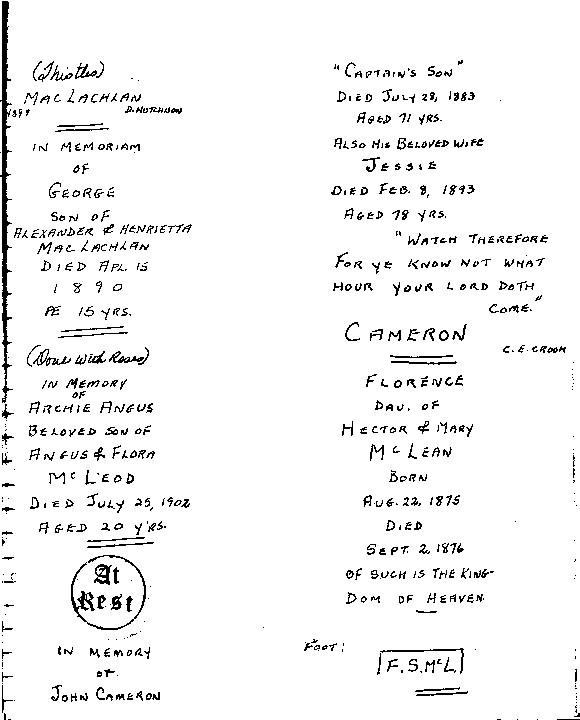 (Thistles)
MacLachlan
1899 D. Hutchison
In Memoriam
of
George
Son of
Alexander & Henrietta
MacLachlan
Died Apl. 15
1890
Æ 15 yrs.
(Done with Roses)
In Memory
of
Archie Angus
Beloved son of
Angus & Flora
McLeod
Died July 25, 1902
Aged 20 yrs.
At
Rest
In Memory
of
John Cameron
"Captain's Son"
Died July 28, 1883
Aged 71 yrs.
Also His Beloved Wife
Jessie
Died Feb. 8, 1893
Aged 78 yrs.
"Watch Therefore
For ye know not what
hour your Lord doth
come."
Cameron
C. E. Croom
Florence
Dau. of
Hector & Mary
McLean
Born
Aug. 22, 1875
Died
Sept. 2, 1876
Of such is the King-
dom of Heaven.
Foot:
F. S. McL.